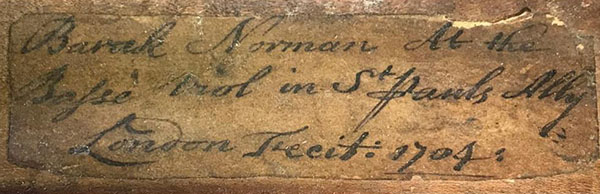 Barak Norman At the
Basse Viol in St Pauls Ally
London Fecit: 1704: